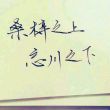 桑梓之上
忘川之下